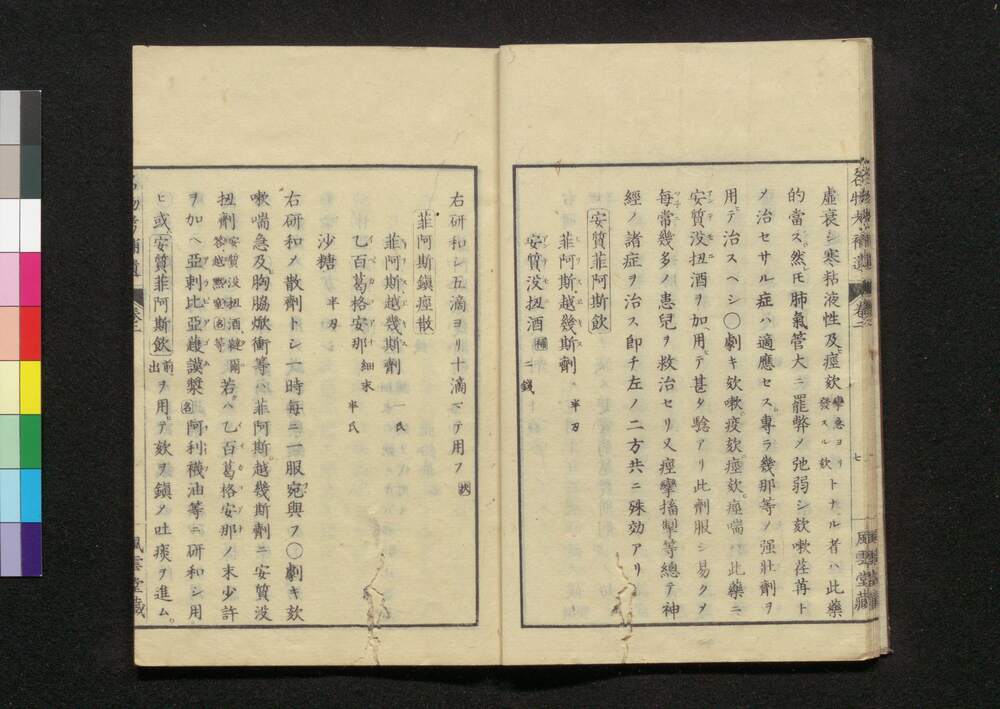 虛衰シ寒粘液性及痙欬攣急ヨリ發スル欬トナル者ハ此藥
的當ス然𪜈肺氣管大ニ罷弊ノ弛弱シ欬嗽荏苒ト
ノ治セサル症ハ適應セス專ラ幾那等ノ强壯劑ヲ
用テ治スヘシ〇劇キ欬嗽疫欬痙欬痙喘ハ此藥ニ
安質没扭酒ヲ加ヘ用テ甚タ驗アリ此劑服シ易クノ
每常幾多ノ患兒ヲ救治セリ又痙攣搐掣等總テ神
經ノ諸症ヲ治ス即チ左ノ二方共ニ殊効アリ
安質菲阿斯飲
菲阿斯越幾斯劑 半刃
安質没扭酒 二錢
右研和シ五滴ヨリ十滴マテ用フ
菲阿斯鎭痙散
菲阿斯越幾斯劑 一氏
乙百葛格安那細末 半氏
沙糖 半刃
右研和ノ散劑トシ一時每ニ一服宛與フ〇劇キ欬
嗽喘急及胸脇焮衝等ハ菲阿斯越幾斯劑ニ安質没
扭劑安質没扭酒 等若ハ乙百葛格安那ノ末少許
ヲ加ヘ亞剌比亞護謨漿名阿利襪油等ニ研和シ用
ヒ或安質菲阿斯飲前出ヲ用テ欬ヲ鎭ノ吐痰ヲ進ム。
卷二
七
風雲堂藏